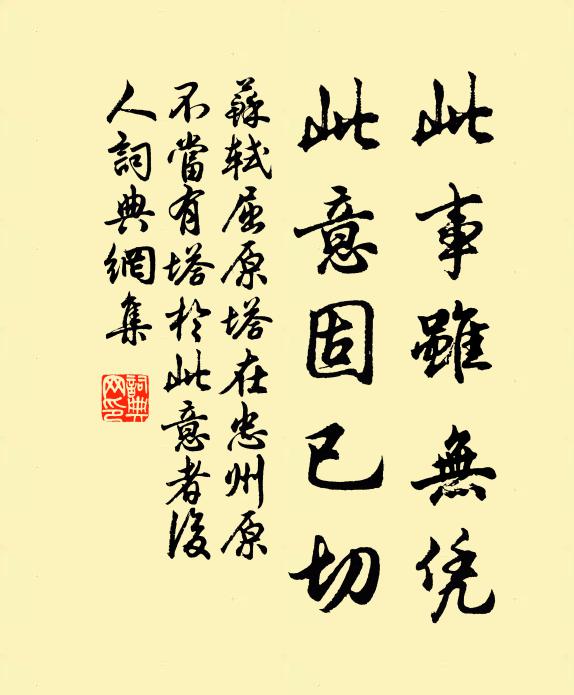 此事雖無凭
此意固已切
蘇軾屈原塔在忠州原
不當有塔於此意者後
人詞典網集
詞典网印